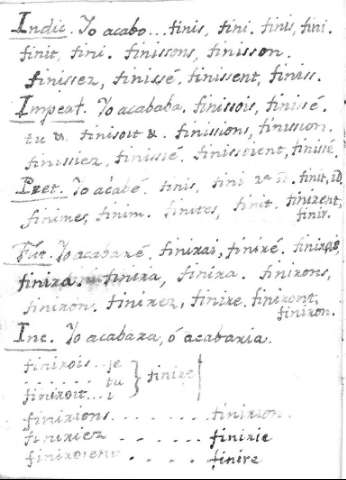 Indic. Yo acabo... finis, fini. finis, fini.
finit, fini. finissons, finisson.
finissez, finissé. finissent, finiss.
Impeat. Yo acababa, finissois, finissé.
tu &. finisoit &. finissions, finission.
finissiez, finissié. finissoient, finissé.
Pret. Yo acabé. finis, fini finit, id.
finimes, finim. finites, finit. finirent,
finir.
Fut. Yo acabaré. finirai, finiré. finiras,
finira. finira, finira. finirons,
finiron. finirez, finire. finiront,
finiron.
Inc. Yo acabara, ó acabaria.
finirois...je
....... tu } finire
finiroit...i
finirions........finirion.
finiriez......finirie
finiroient.....finire